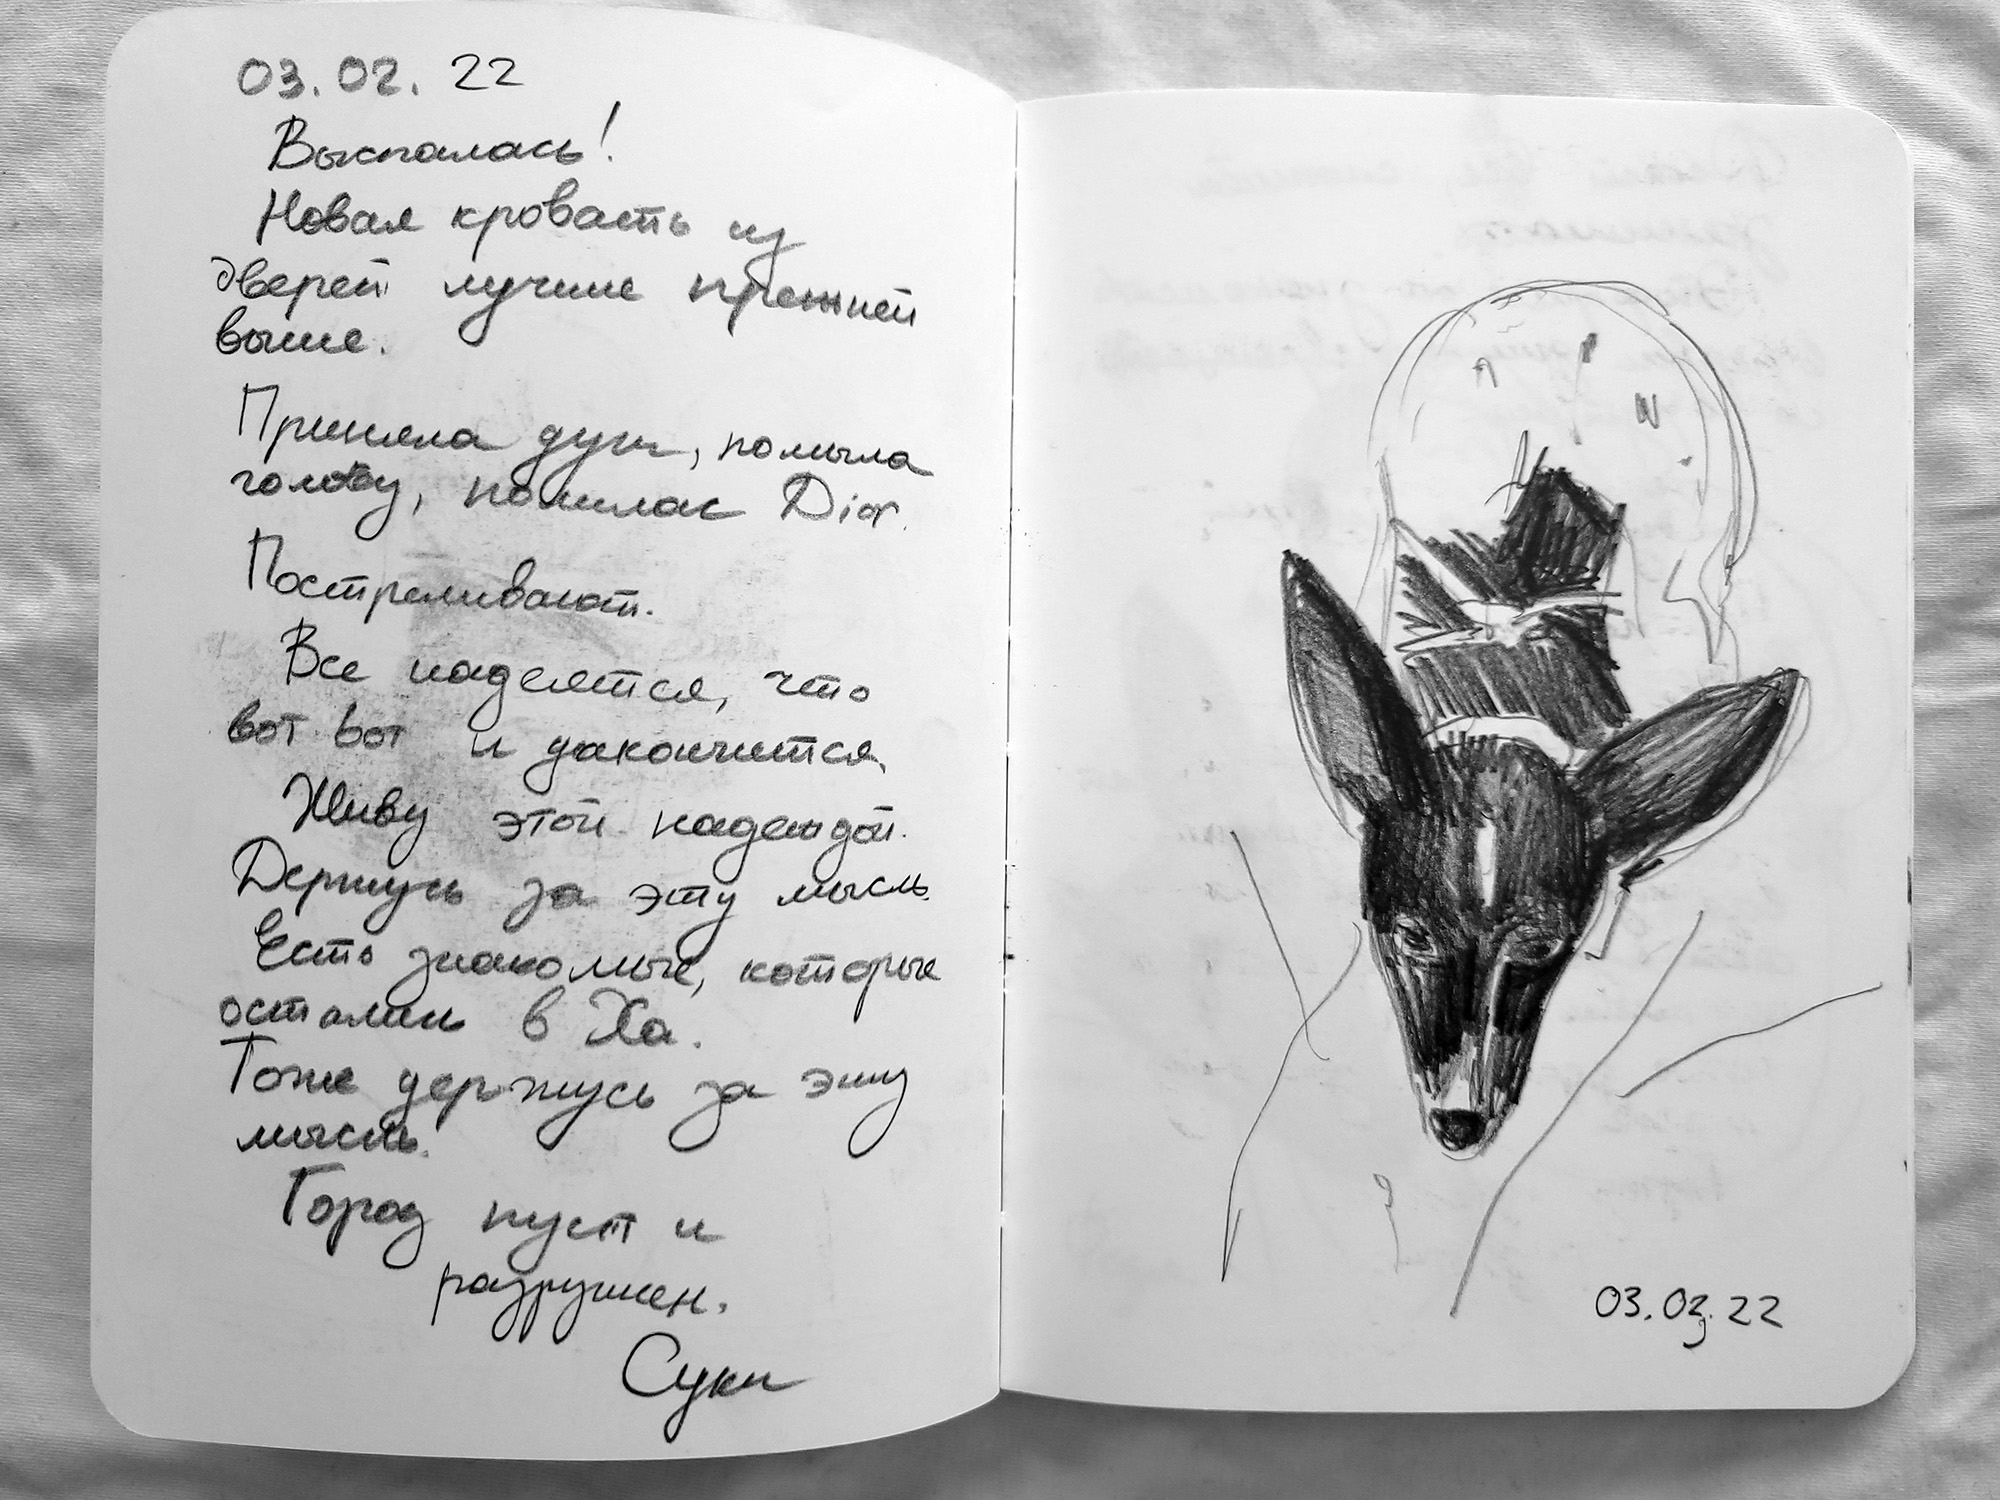 03.02.22
Выспалась!
Новая кровать из
дверей лучше прежней
выше.
Приняла душ, помыла
голову,
Dior.
Постреливают.
Все надеятся, что
вот вот и закончится.
Живу этой надеждой.
Держусь за эту мысль.
Есть знакомые, которые
остались в Ха.
Тоже держусь за эту
мысль.
Город пуст и
разрушен.
Суки
03.03.22